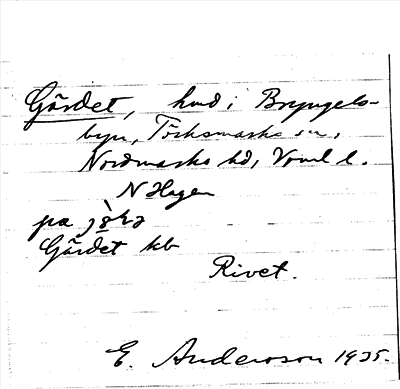 Gärdet, hmd i Bryngels-
byn, Töcksmarks sn,
Nordmarks hd, Vrml l.
N Hagen
pa
Gärdet kb
Rivet.
E. Andersson 1935.